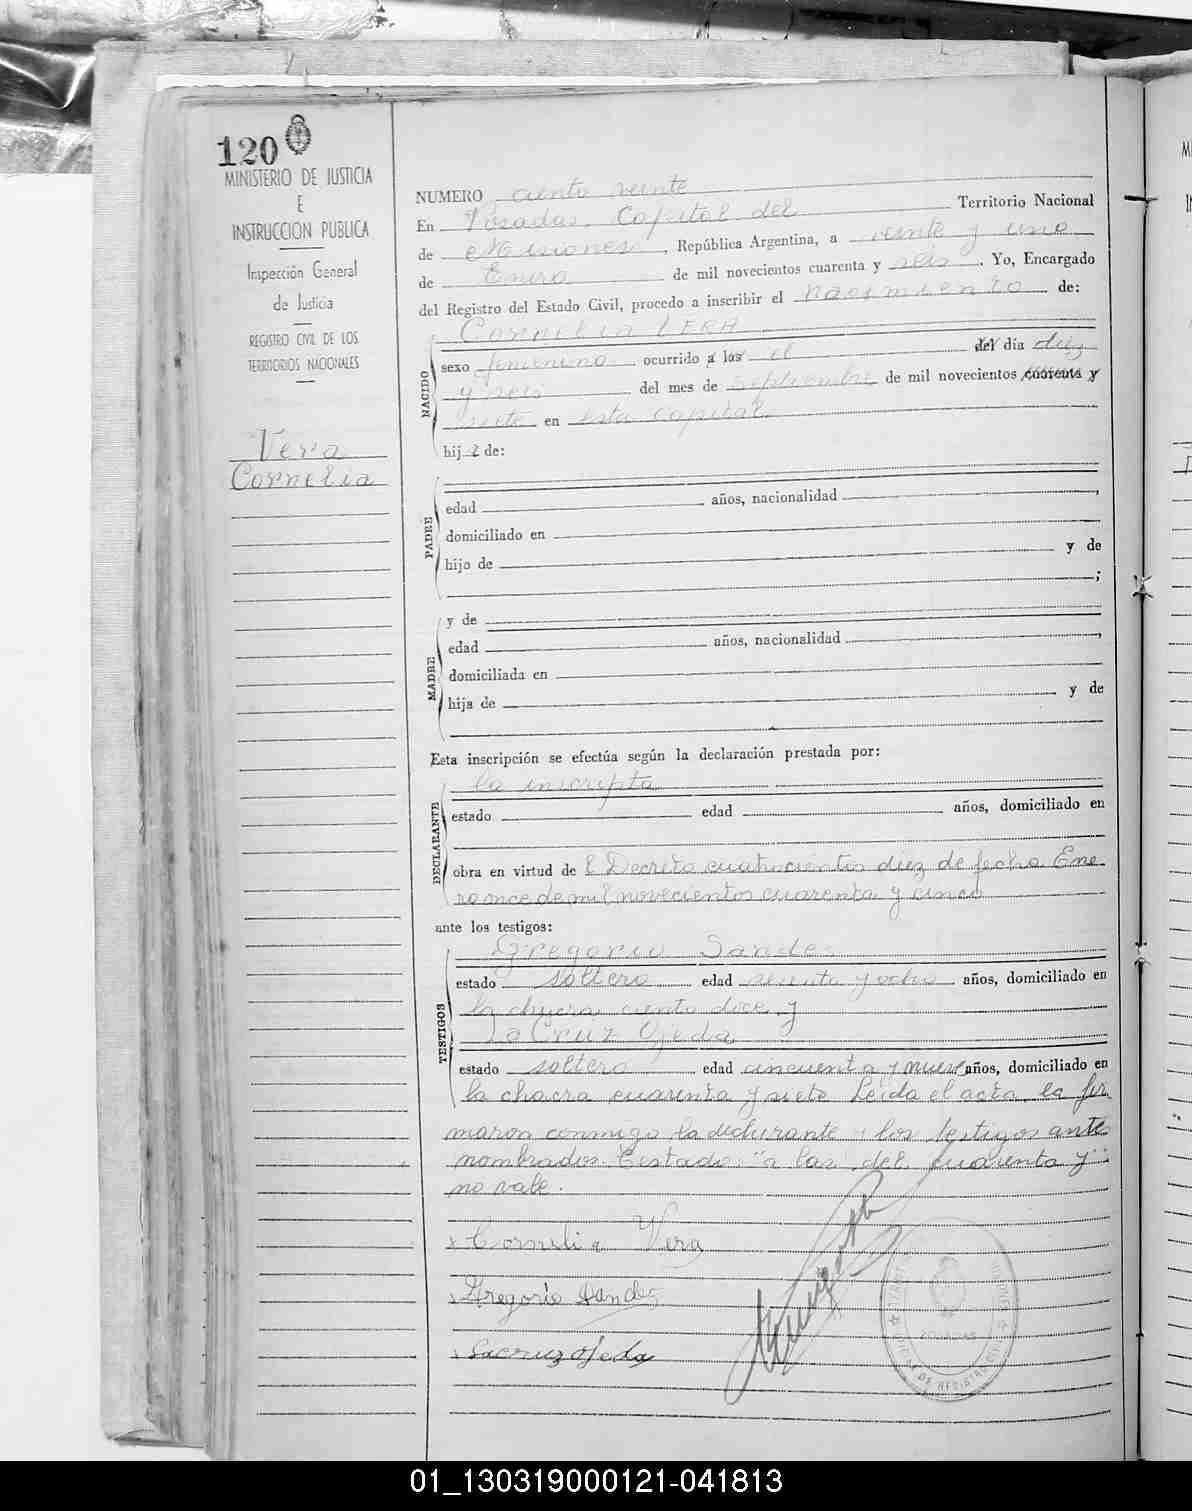 120
MINISTERIO DE JUSTICIA
E
INSTRUCCION PUBLICA
Inspección General
de Justicia
REGISTRO CIVIL DE LOS
TERRITORIOS NACIONALES
Vera
Cornelia
NUMERO ciento veinte
En Posadas, Capital del Territorio Nacional
de Misiones, República Argentina, a veinte y uno
de Enero de mil novecientos cuarenta y seis. Yo, Encargado
del Registro del Estado Civil, procedo a inscribir el nacimiento de:
NACIDO
Cornelia VERA
sexo femenino ocurrido a las el del día diez
y seis del mes de septiembre de mil novecientos cuarenta y
siete en esta capital
hija de:
PADRE
edad años, nacionalidad ,
domiciliado en
hijo de y de
;
MADRE
y de
edad años, nacionalidad ,
domiciliada en
hija de y de
Esta inscripción se efectúa según la declaración prestada por:
DECLARANTE
la inscripta
estado edad años, domiciliado en
obra en virtud de l Decreto cuatrocientos diez de fecha Ene
ro once de mil novecientos cuarenta y cinco
ante los testigos:
TESTIGOS
Gregorio Sandez
estado soltero edad y ocho años, domiciliado en
la chacra ciento doce y
La Cruz Ojeda
estado soltero edad cincuenta y nueve años, domiciliado en
la chacra cuarenta y siete Leída el acta, la fir
maron conmigo la declarante y los testigos ante
nombrados. Testado: "a las" del cuarenta y"
no vale.
Cornelia Vera
Gregorio Sandez
Lacruz ojeda
POSADAS
01_130319000121-041813